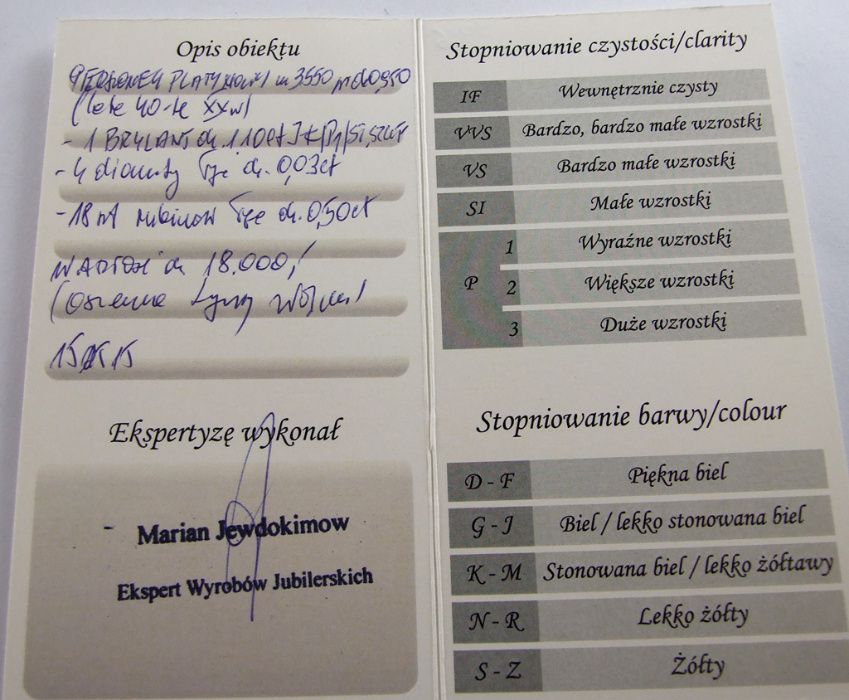 Opis obiektu
PIERŚCIONEK PLATYNOWY m 3550 pr. 0,950
(lata 40-te XXw)
- 1 BRYLANT ok. 1.10ct
- 4 diamenty łącznie ok. 0,03ct
- 18 szt rubinów łącznie ok. 0,50ct
WARTOŚĆ ok 18.000,-
Ekspertyzę wykonał
Marian Jewdokimow
Ekspert Wyrobów Jubilerskich
Stopniowanie czystości/clarity
IF Wewnętrznie czysty
VVS Bardzo, bardzo małe wzrostki
VS Bardzo małe wzrostki
SI Małe wzrostki
1 Wyraźne wzrostki
P 2 Większe wzrostki
3 Duże wzrostki
Stopniowanie barwy/colour
D - F Piękna biel
G - J Biel / lekko stonowana biel
K - M Stonowana biel / lekko żółtawy
N - R Lekko żółty
S - Z Żółty